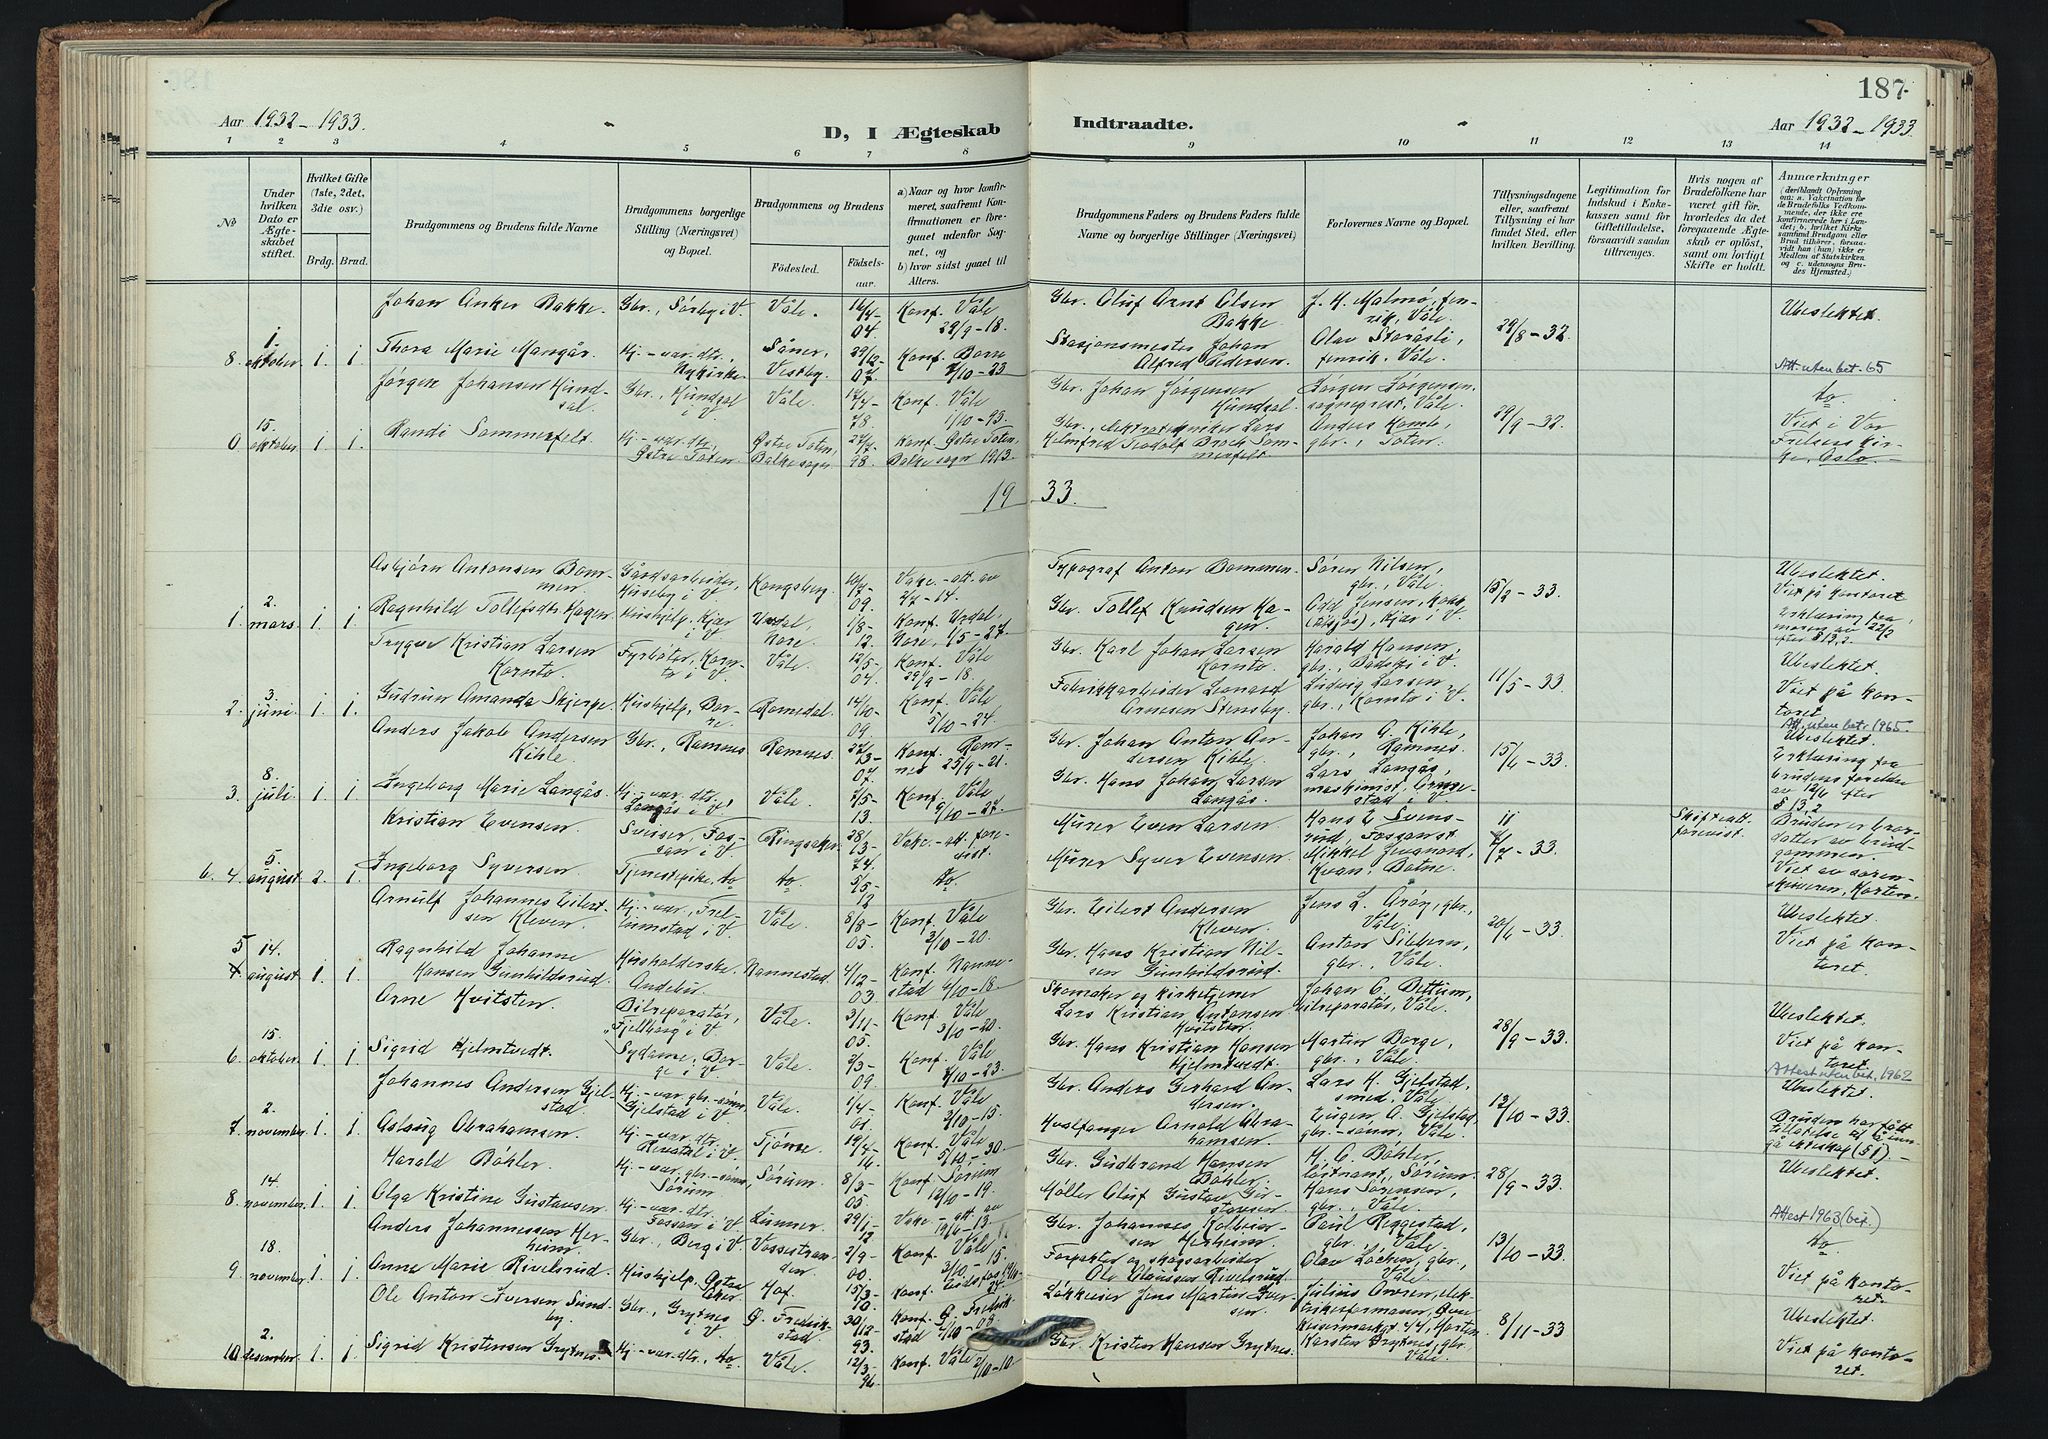 187
Aar 1932-1933.
D, I Ægteskab
Indtraadte.
Aar 1932-1933
1 2 3 4 5 6 7 8 9 10 11 12 13 14
No
Under hvilken Dato er Ægteskabet stiftet.
Hvilket Gifte (1ste, 2det, 3die osv.)
Brdg. Brud.
Brudgommens og Brudens fulde Navne
Brudgommens borgerlige Stilling (Næringsvei) og Bopæl.
Brudgommens og Brudens
Fødested.
Fødselsaar.
a) Naar og hvor konfirmeret, saafremt Konfirmationen er foregaaet udenfor Sognet, og
b) hvor sidst gaaet til Alters.
Brudgommens Faders og Brudens Faders fulde Navne og borgerlige Stillinger (Næringsvei)
Forlovernes Navne og Bopæl.
Tillysningsdagene eller, saafremt Tillysning ei har fundet Sted, efter hvilken Bevilling.
Legitimation for Indskud i Enkekassen samt for Giftetilladelse, forsaavidt saadan tiltrænges.
Hvis nogen af Brudefolkene har været gift før, hvorledes da det foregaaende Ægteskab er opløst, samt om lovligt Skifte er holdt.
Anmærkninger
Johan Anker Bakke. Gbr., Sørby i V. Våle. 16/4-04 Konf. Våle 29/9-18. Gbr. Oluf Arnt Olsen Bakke. J. H. Malmø, fenrik, Våle. 29/8-32. Ubeslektet.
8. 1. oktober. 1. 1. Thora Marie Mangår. Hj.-vær. dtr., Nykirke. Såner, Vestby. 29/12-07 Konf. Borre 7/10-23 Stasjonsmester Johan Alfred Pedersen. Olav Storåsli, fenrik, Våle. Att. uten bet. 65
Jørgen Johansen Hundsal. Gbr., Hundsal i V. Våle. 12/4-78. Konf. Våle 1/10-93. Gbr. Johan Jørgensen Hundsal. Jørgen Jørgensen, sogneprest, Våle. 29/9-32. do
0 15. oktober. 1. 1. Randi Sommerfelt. Hj.-vær. dtr., Østre Toten. Østre Toten, Balke sogn 98. Konf. Østre Toten, Balke sogn 1913. Anders Komb, gbr., Toten. Viet i Vor Frelsers kirke, Oslo.
1933.
Asbjørn Antonsen Bommen. Gårdsarbeider, Huseby i V. Kongsberg. 10/7-09. Vake.-att. av 2/7-14. Typograf Anton Bommen. Søren Nilsen, gbr., Våle. 15/2-33. Ubeslektet. Viet på kontoret
1. 2. mars. 1. 1. Ragnhild Tollefsdtr. Hagen. Hushjelp, Kjær i V. Uvdal, Nore. 1/8-12. Konf. Uvdal, Nore, 1/5-27. Gbr. Tollef Knudsen Hagen. Odd Jensen, Kjær i V. Erklæring fra moren av 22/2 efter § 13,2.
Trygve Kristian Larsen Kornto. Fyrbøter, Kornto i V. Våle. 12/5-04. Konf. Våle 29/9-18. Gbr. Karl Johan Larsen Kornto. Harald Hansen, gbr., i V. 11/5-33. Ubeslektet.
2. 3. juni. 1. 1. Gudrun Amanda Skjerpe. Hushjelp, Borre. Romedal. 14/10-09. Konf. Våle 5/10-24. Fabrikkarbeider Leonard Arnesen Stensby. Ludvig Larsen, gbr., Kornto i V. Viet på kontoret. Att. uten bet. 1965.
Anders Jakob Andersen Kihle. Gbr., Ramnes. Ramnes. 27/3-07. Konf. Ramnes 25/9-21. Gbr. Johan Anton Andersen Kihle. Johan A. Kihle, gbr., Ramnes. 15/6-33. Ubeslektet. Erklæring fra brudens foreldre av 12/6 efter § 13,2
3. 8. juli. 1. 1. Ingeborg Marie Langås. Hj.-vær. dtr., Langås i V. Våle. 2/5-13. Konf. Våle 9/10-27. Gbr. Hans Johan Larsen Langås. Lars Langås, maskinist, i V.
Kristian Evensen. Sveiser, Fossan i V. Ringsaker. 28/3-74. Vake.-att. forevist. Murer Even Larsen. Hans E. Svensrud, Fossan i V. 11/7-33. Skifteatt. forevist. Bruden er brordatter av brudgommen.
6. 4. 5. august 2. 1. Ingeborg Syversen. Tjenestepike, do do. 5/5-12 do. Murer Syver Evensen. Mikkel, Kvan, Botne. Viet av sorenskriveren, Horten.
Arnulf Johannes Eilertsen Kleven. Hj.-vær., Freiumstad i V. Våle. 8/8-05. Konf. Våle 3/10-20. Gbr. Eilert Andersen Kleven. Jens L. Arøy, gbr., Våle. 20/6-33. Ubeslektet.
5 14. august 1. 1. Ragnhild Johanne Hansen Gunhildsrud. Husholderske. Andebu. Nannestad. 4/12-03 Konf. Nannestad 6/10-18. Gbr. Hans Kristian Nilsen Gunhildsrud. Anton Sibbern, gbr., Våle. Viet på kontoret.
Arne Hvitsten. Bilreparatør, "Fjellborg" i V. Våle. 3/11-05. Konf. Våle 3/10-20. Skomaker og kirketjener Lars Kristian Antonsen Hvitsten. Johan C. Bettum, bilreparatør, Våle. 28/9-33. Ubeslektet.
6. 15. oktober. 1. 1. Sigrid Hjelmtvedt. Sydame, Borge i V. Våle. 2/3-09. Konf. Våle 7/10-23. Gbr. Hans Kristian Hansen Hjelmtvedt. Martin Borge, gbr., Våle. Viet på kontoret. Attest uten bet. 1962
Johannes Andersen Gjelstad. Hj.-vær. gbr.-sønn, Gjelstad i V. Våle. 1/4-01. Konf. Våle 3/10-15. Gbr. Anders Gerhard Andersen. Lars H. Gjelstad, smed, Våle. 12/10-33. Ubeslektet.
7. 2. november. 1. 1. Aslaug Abrahamsen. Hj.-vær. dtr. i V. Tjøme. 19/4-14. Konf. Våle 5/10-30. Hvalfanger Arnold Abrahamsen. Eugen A. Gjelstad, gbr.-sønn, Våle. Bruden har fått tillatelse til å inngå ekteskap (§ 1).-
Harald Bøhler. Hj.-vær. gbr.-sønn, Sørum Sørum. 8/3-05. Konf. Sørum 12/10-19. Gbr. Gudbrand Hansen Bøhler. H. G. Bøhler, løitnant, Sørum. 28/9-33. Ubeslektet.
8. 14. november. 1. 1. Olga Kristine Gustavsen. Hj.-vær. dtr. Fossan i V. Lunner. 29/1-12 Vake-att. av 19/6-13. Møller Oluf Gustav Gustavsen Hans Sørensen, gbr., Våle. Attest 1963 (bet.)
Anders Johannessen Herheim. Gbr., Berg i V. Vossestranden 2/9-00. Konf. Våle 3/10-15. Gbr. Johannes Kolbeinsen Herheim. Paul Riggestad, gbr. Våle. 13/10-33. do
9. 18. november. 1. 1. Anne Marie Rivelsrud. Hushjelp, Østre Aker Hof. 15/3-10. Konf. Eidsfos 1924. Forpakter og skogsarbeider Ole Olaussen Rivelsrud. Olav Løchen, gbr., Våle. Viet på kontoret.
Ole Anton Iversen Sundby. Gbr., Grytnes i V. Ø. Fredrikstad. 30/12-93. Konf. Ø. Fredrikstad 4/10-08. Løkkeeier Jens Martin Iversen. Julius, elektrikerformann, Horten. 8/11-33 Ubeslektet.
10 2. desember. 1. 1. Sigrid Kristensen Grytnes. Hj.-vær. dtr., do Våle. 12/3-96 Konf. Våle 2/10-10. Gbr. Kristen Hansen Grytnes. Karsten Grytnes, gbr. Våle. Viet på kontoret.